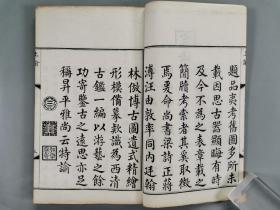 題品夷考舊圖多所未
載因思古器顯晦有時
及今不為之表章載之
簡牘考索者其奚取徵
焉爰命尚書梁詩正蔣
溥汪由敦率同内廷翰
林倣博古圖遺式精繪
形模備摹款識為西清
古鑑一編以游藝之餘
功寄鑒古之遠思亦足
稱昇平雅尚云特諭